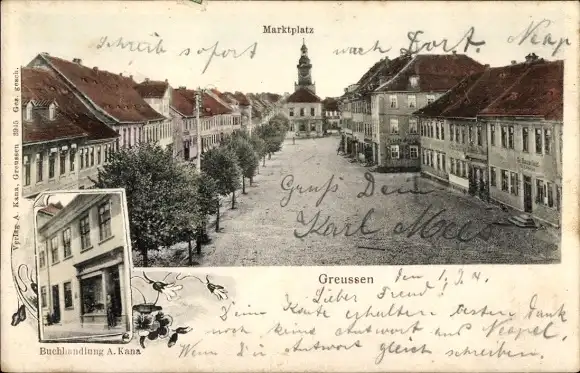 Marktplatz
Schreib sofort nach Dort. Neap
Verlag A. Kana, Greussen 3945 Ges. gesch.
Gruß Dein
Karl
Greussen
Buchhandlung A. Kana
den 1.
Lieber Freund!
Deine Karte erhalten besten Dank
noch keine Antwort aus Neapel.
Wenn Dir Antwort gleich schreiben.